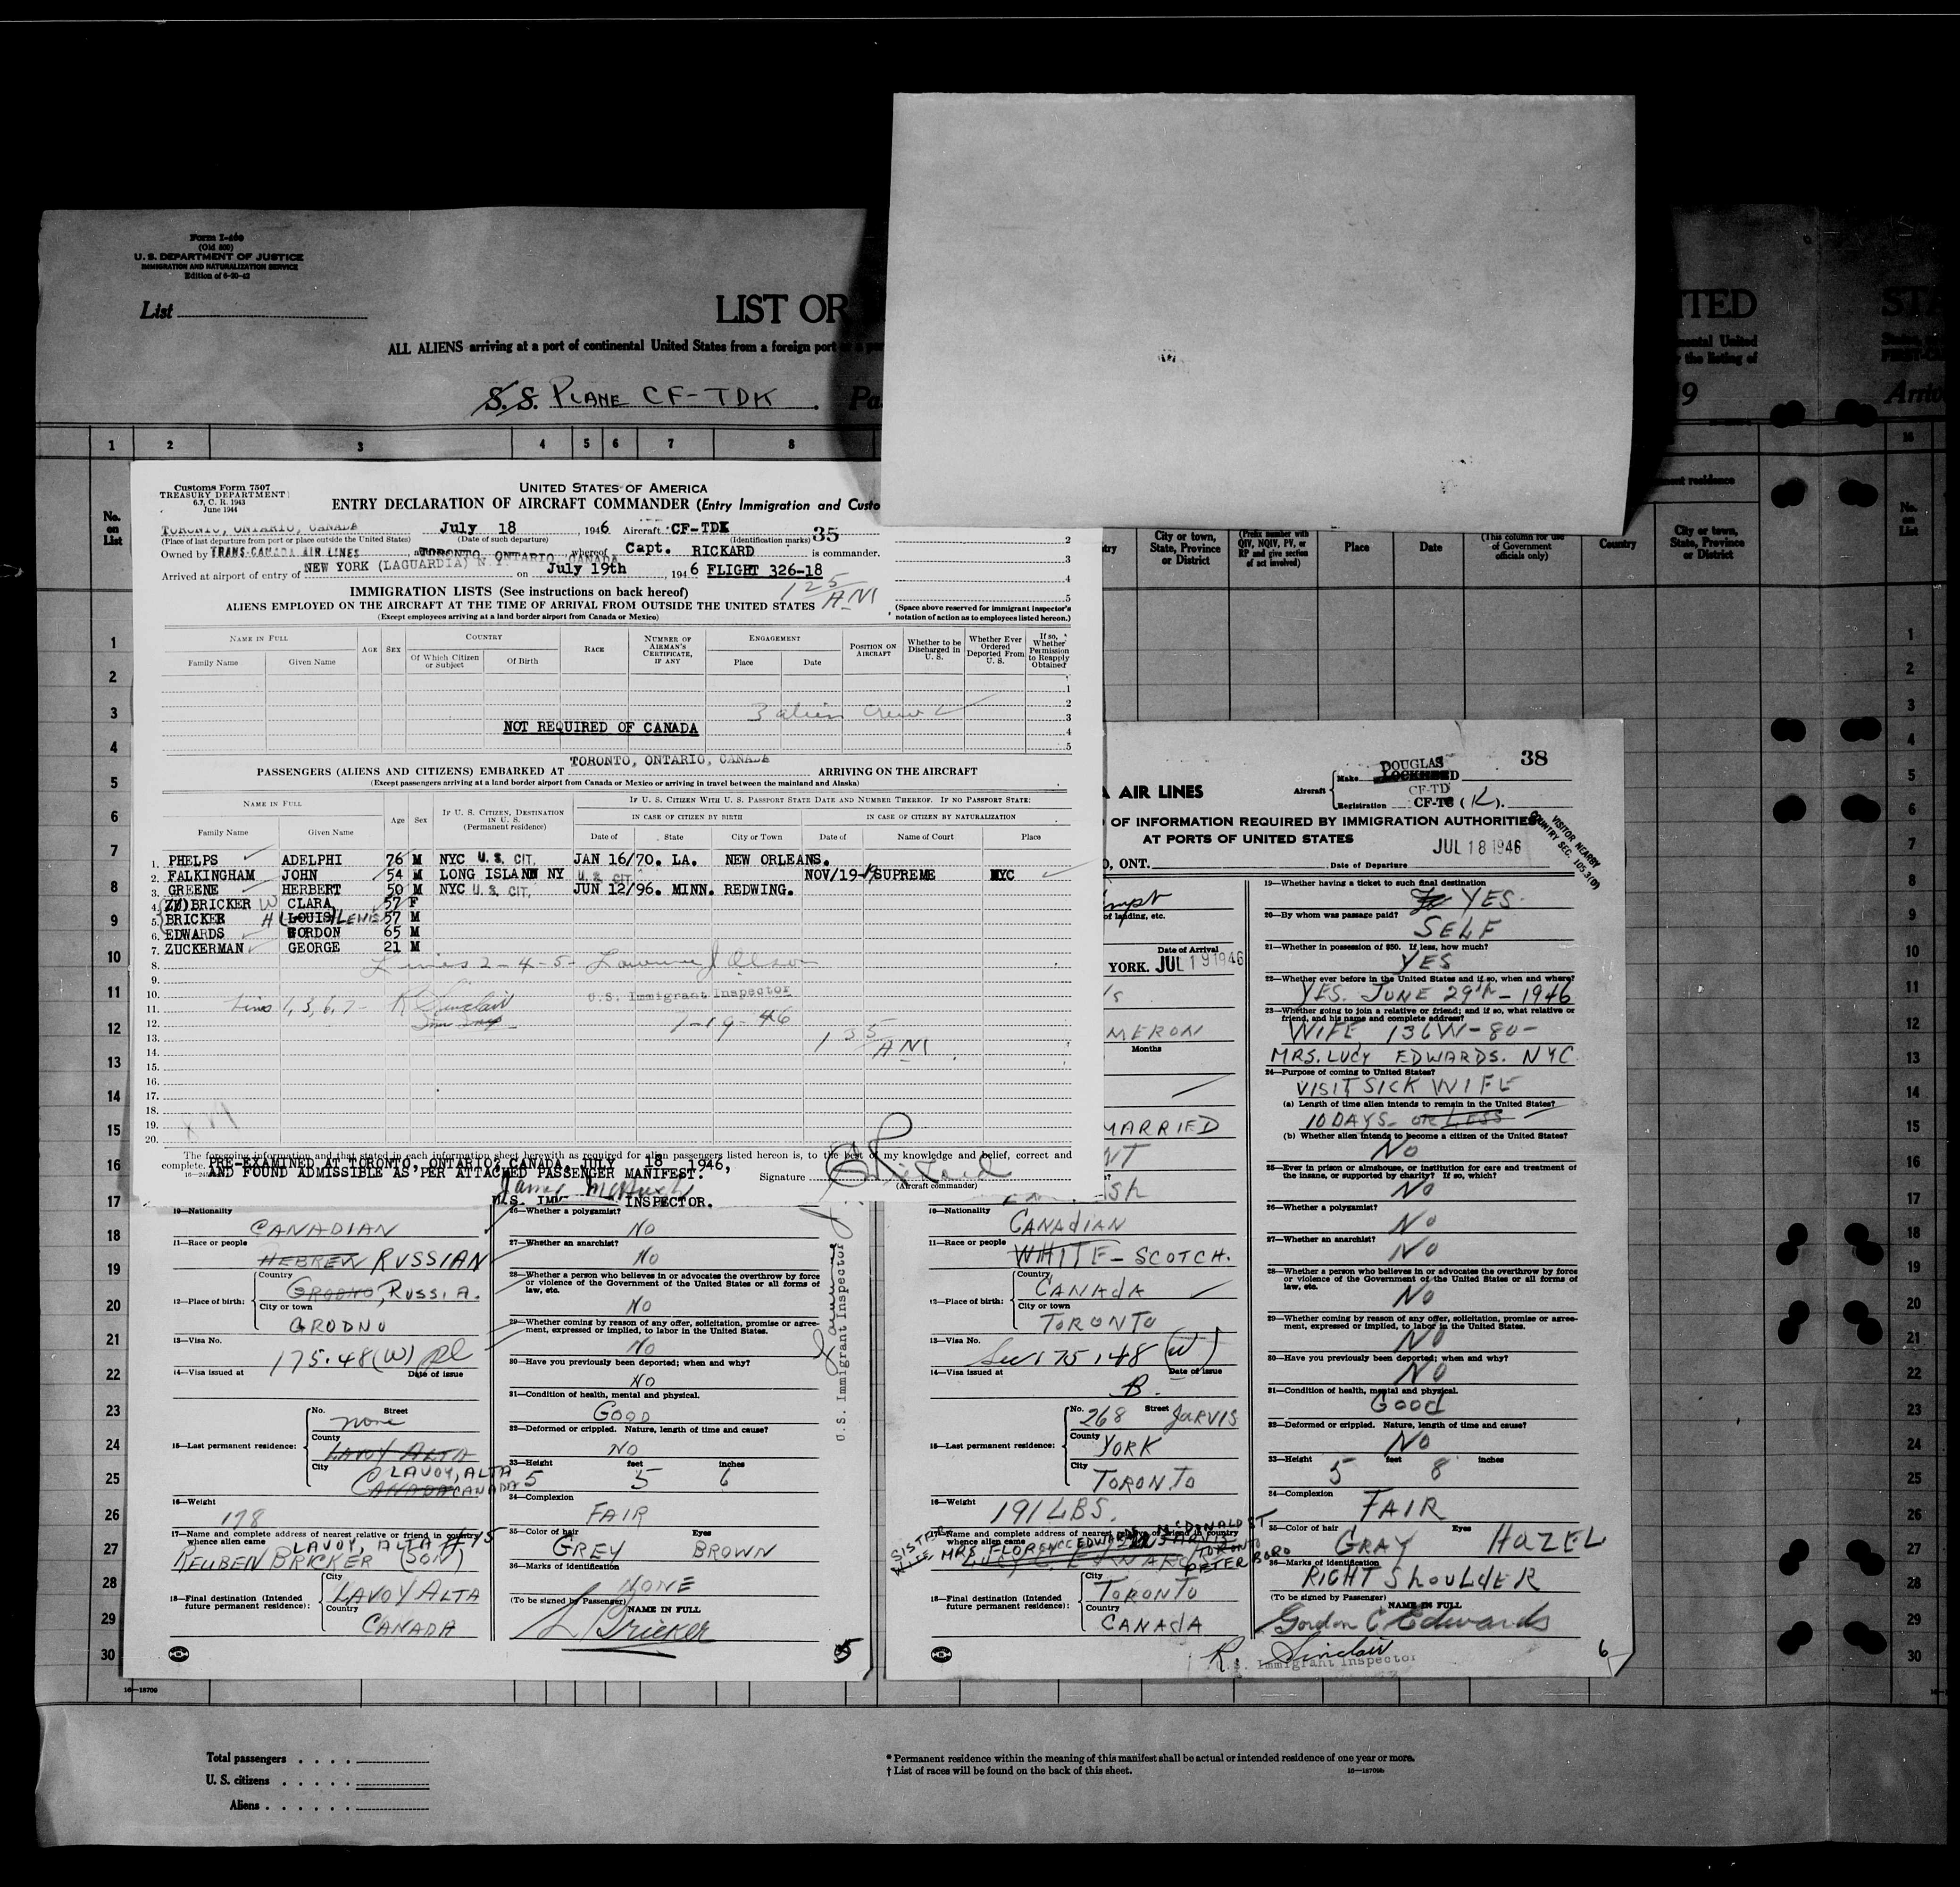 Form I-466
(Old 500)
U. S. DEPARTMENT OF JUSTICE
IMMIGRATION AND NATURALIZATION SERVICE
Edition of 6-20-42
List
LIST OR
ITED
STA
ALL ALIENS arriving at a port of continental United States from a foreign port
nental United
the listing of
S. S. PLANE CF-TDK
Pa
9
1 2 3 4 5 6 7 8
No. on List
Customs Form 7507
TREASURY DEPARTMENT
6.7, C. R. 1943
June 1944
UNITED STATES OF AMERICA
ENTRY DECLARATION OF AIRCRAFT COMMANDER (Entry Immigration and Custo
TORONTO, ONTARIO, CANADA July 18 1946 Aircraft CF-TDK 35
(Place of last departure from port or place outside the United States) (Date of such departure) (Identification marks)
Owned by TRANS-CANADA AIR LINES, at TORONTO ONTARIO CANADA whereof Capt. RICKARD is commander.
Arrived at airport of entry of NEW YORK (LAGUARDIA) N.Y. on July 19th, 1946 FLIGHT 326-18
1 25 AM
2
3
4
5
(Space above reserved for immigrant inspector's
notation of action as to employees listed hereon.)
IMMIGRATION LISTS (See instructions on back hereof)
ALIENS EMPLOYED ON THE AIRCRAFT AT THE TIME OF ARRIVAL FROM OUTSIDE THE UNITED STATES
(Except employees arriving at a land border airport from Canada or Mexico)
NAME IN FULL AGE SEX COUNTRY RACE NUMBER OF AIRMAN'S CERTIFICATE, IF ANY ENGAGEMENT POSITION ON AIRCRAFT Whether to be Discharged in U. S. Whether Ever Ordered Deported From U. S. If so, Whether Permission to Reapply Obtained
Family Name Given Name Of Which Citizen or Subject Of Birth Place Date
1
2
3 alien crew
3
NOT REQUIRED OF CANADA
4
5
PASSENGERS (ALIENS AND CITIZENS) EMBARKED AT TORONTO, ONTARIO, CANADA ARRIVING ON THE AIRCRAFT
(Except passengers arriving at a land border airport from Canada or Mexico or arriving in travel between the mainland and Alaska)
NAME IN FULL Age Sex IF U. S. CITIZEN, DESTINATION IN U. S. (Permanent residence) IF U. S. CITIZEN WITH U. S. PASSPORT STATE DATE AND NUMBER THEREOF. IF NO PASSPORT STATE:
IN CASE OF CITIZEN BY BIRTH IN CASE OF CITIZEN BY NATURALIZATION
Family Name Given Name Date of State City or Town Date of Name of Court Place
1. PHELPS ADELPHI 76 M NYC U. S. CIT. JAN 16/70. LA. NEW ORLEANS.
2. FALKINGHAM JOHN 54 M LONG ISLANN NY U. S. CIT. NOV/19-17 SUPREME NYC
3. GREENE HERBERT 50 M NYC U. S. CIT. JUN 12/96. MINN. REDWING.
4. BRICKER W CLARA 57 F
5. BRICKER H (LOUIS) LEWIS 57 M
6. EDWARDS GORDON 65 M
7. ZUCKERMAN GEORGE 21 M
8. Lines 2-4-5- Lawrence J Olson
9.
10. U.S. Immigrant Inspector
11. Lines 1, 3, 6, 7- R Sinclair
12. 7-19-46
13. 1 35 AM
14.
15.
16.
17.
18.
19.
20.
The foregoing information and that stated in each information sheet herewith as required for alien passengers listed hereon is, to the best of my knowledge and belief, correct and
complete. PRE-EXAMINED AT TORONTO, ONTARIO, CANADA, JULY 18 1946,
AND FOUND ADMISSIBLE AS PER ATTACHED PASSENGER MANIFEST.
Signature
(Aircraft commander)
James McHugh
U.S. IMM INSPECTOR.
City or town, State, Province or District
(Prefix number with QIV, NQIV, PV, or RP and give section of act involved)
Place
Date
(This column for use of Government officials only)
Country
City or town, State, Province or District
10—Nationality
CANADIAN
11—Race or people
HEBREW RUSSIAN
12—Place of birth:
Country
GRODNO, RUSSIA.
City or town
GRODNO
13—Visa No.
175.48(W)
14—Visa issued at Date of issue
15—Last permanent residence:
No. Street
none
County
LAVOY ALTA
City
LAVOY, ALTA
CANADA CANADA
16—Weight
178
17—Name and complete address of nearest relative or friend in country whence alien came
LAVOY, ALTA
REUBEN BRICKER (SON)
18—Final destination (Intended future permanent residence):
City
LAVOY ALTA
Country
CANADA
26—Whether a polygamist?
NO
27—Whether an anarchist?
NO
28—Whether a person who believes in or advocates the overthrow by force or violence of the Government of the United States or all forms of law, etc.
NO
29—Whether coming by reason of any offer, solicitation, promise or agreement, expressed or implied, to labor in the United States.
NO
30—Have you previously been deported; when and why?
NO
31—Condition of health, mental and physical.
GOOD
32—Deformed or crippled. Nature, length of time and cause?
NO
33—Height feet inches
5 5 6
34—Complexion
FAIR
35—Color of hair Eyes
GREY BROWN
36—Marks of identification
NONE
(To be signed by Passenger) NAME IN FULL
L Bricker
5
U.S. Immigrant Inspector
38
DOUGLAS
Aircraft Make LOCKHEED
CF-TD
Registration CF-TC (K).
A AIR LINES
OF INFORMATION REQUIRED BY IMMIGRATION AUTHORITIES
AT PORTS OF UNITED STATES
VISITOR NEARBY
COUNTRY SEC. 105 3(0)
JUL 18 1946
O, ONT. Date of Departure
of landing, etc.
Date of Arrival
YORK. JUL 19 1946
MERON
Months
MARRIED
10—Nationality
CANADIAN
11—Race or people
WHITE - SCOTCH.
12—Place of birth:
Country
CANADA
City or town
TORONTO
13—Visa No.
Sec 175.48 (W)
14—Visa issued at Date of issue
B.
15—Last permanent residence:
No. 268 Street JARVIS
County
YORK
City
TORONTO
16—Weight
191 LBS.
17—Name and complete address of nearest relative or friend in country whence alien came
SISTER MRS. FLORENCE McDONALD ST
PETERBORO
18—Final destination (Intended future permanent residence):
City
TORONTO
Country
CANADA
19—Whether having a ticket to such final destination
YES.
20—By whom was passage paid?
SELF
21—Whether in possession of $50. If less, how much?
YES
22—Whether ever before in the United States and if so, when and where?
YES. JUNE 29th - 1946
23—Whether going to join a relative or friend; and if so, what relative or friend, and his name and complete address?
WIFE 136 W-80-
MRS. LUCY EDWARDS. NYC
24—Purpose of coming to United States?
VISIT SICK WIFE
(a) Length of time alien intends to remain in the United States?
10 DAYS - OR LESS
(b) Whether alien intends to become a citizen of the United States?
NO
25—Ever in prison or almshouse, or institution for care and treatment of the insane, or supported by charity? If so, which?
NO
26—Whether a polygamist?
NO
27—Whether an anarchist?
NO
28—Whether a person who believes in or advocates the overthrow by force or violence of the Government of the United States or all forms of law, etc.
NO
29—Whether coming by reason of any offer, solicitation, promise or agreement, expressed or implied, to labor in the United States.
NO
30—Have you previously been deported; when and why?
NO
31—Condition of health, mental and physical.
Good
32—Deformed or crippled. Nature, length of time and cause?
NO
33—Height feet inches
5 8
34—Complexion
FAIR
35—Color of hair Eyes
GRAY HAZEL
36—Marks of identification
RIGHT SHOULDER
(To be signed by Passenger) NAME IN FULL
Gordon C Edwards
R. Sinclair
U.S. Immigrant Inspector
6
16—18709
Total passengers
U. S. citizens
Aliens
* Permanent residence within the meaning of this manifest shall be actual or intended residence of one year or more.
† List of races will be found on the back of this sheet.
16—18709b